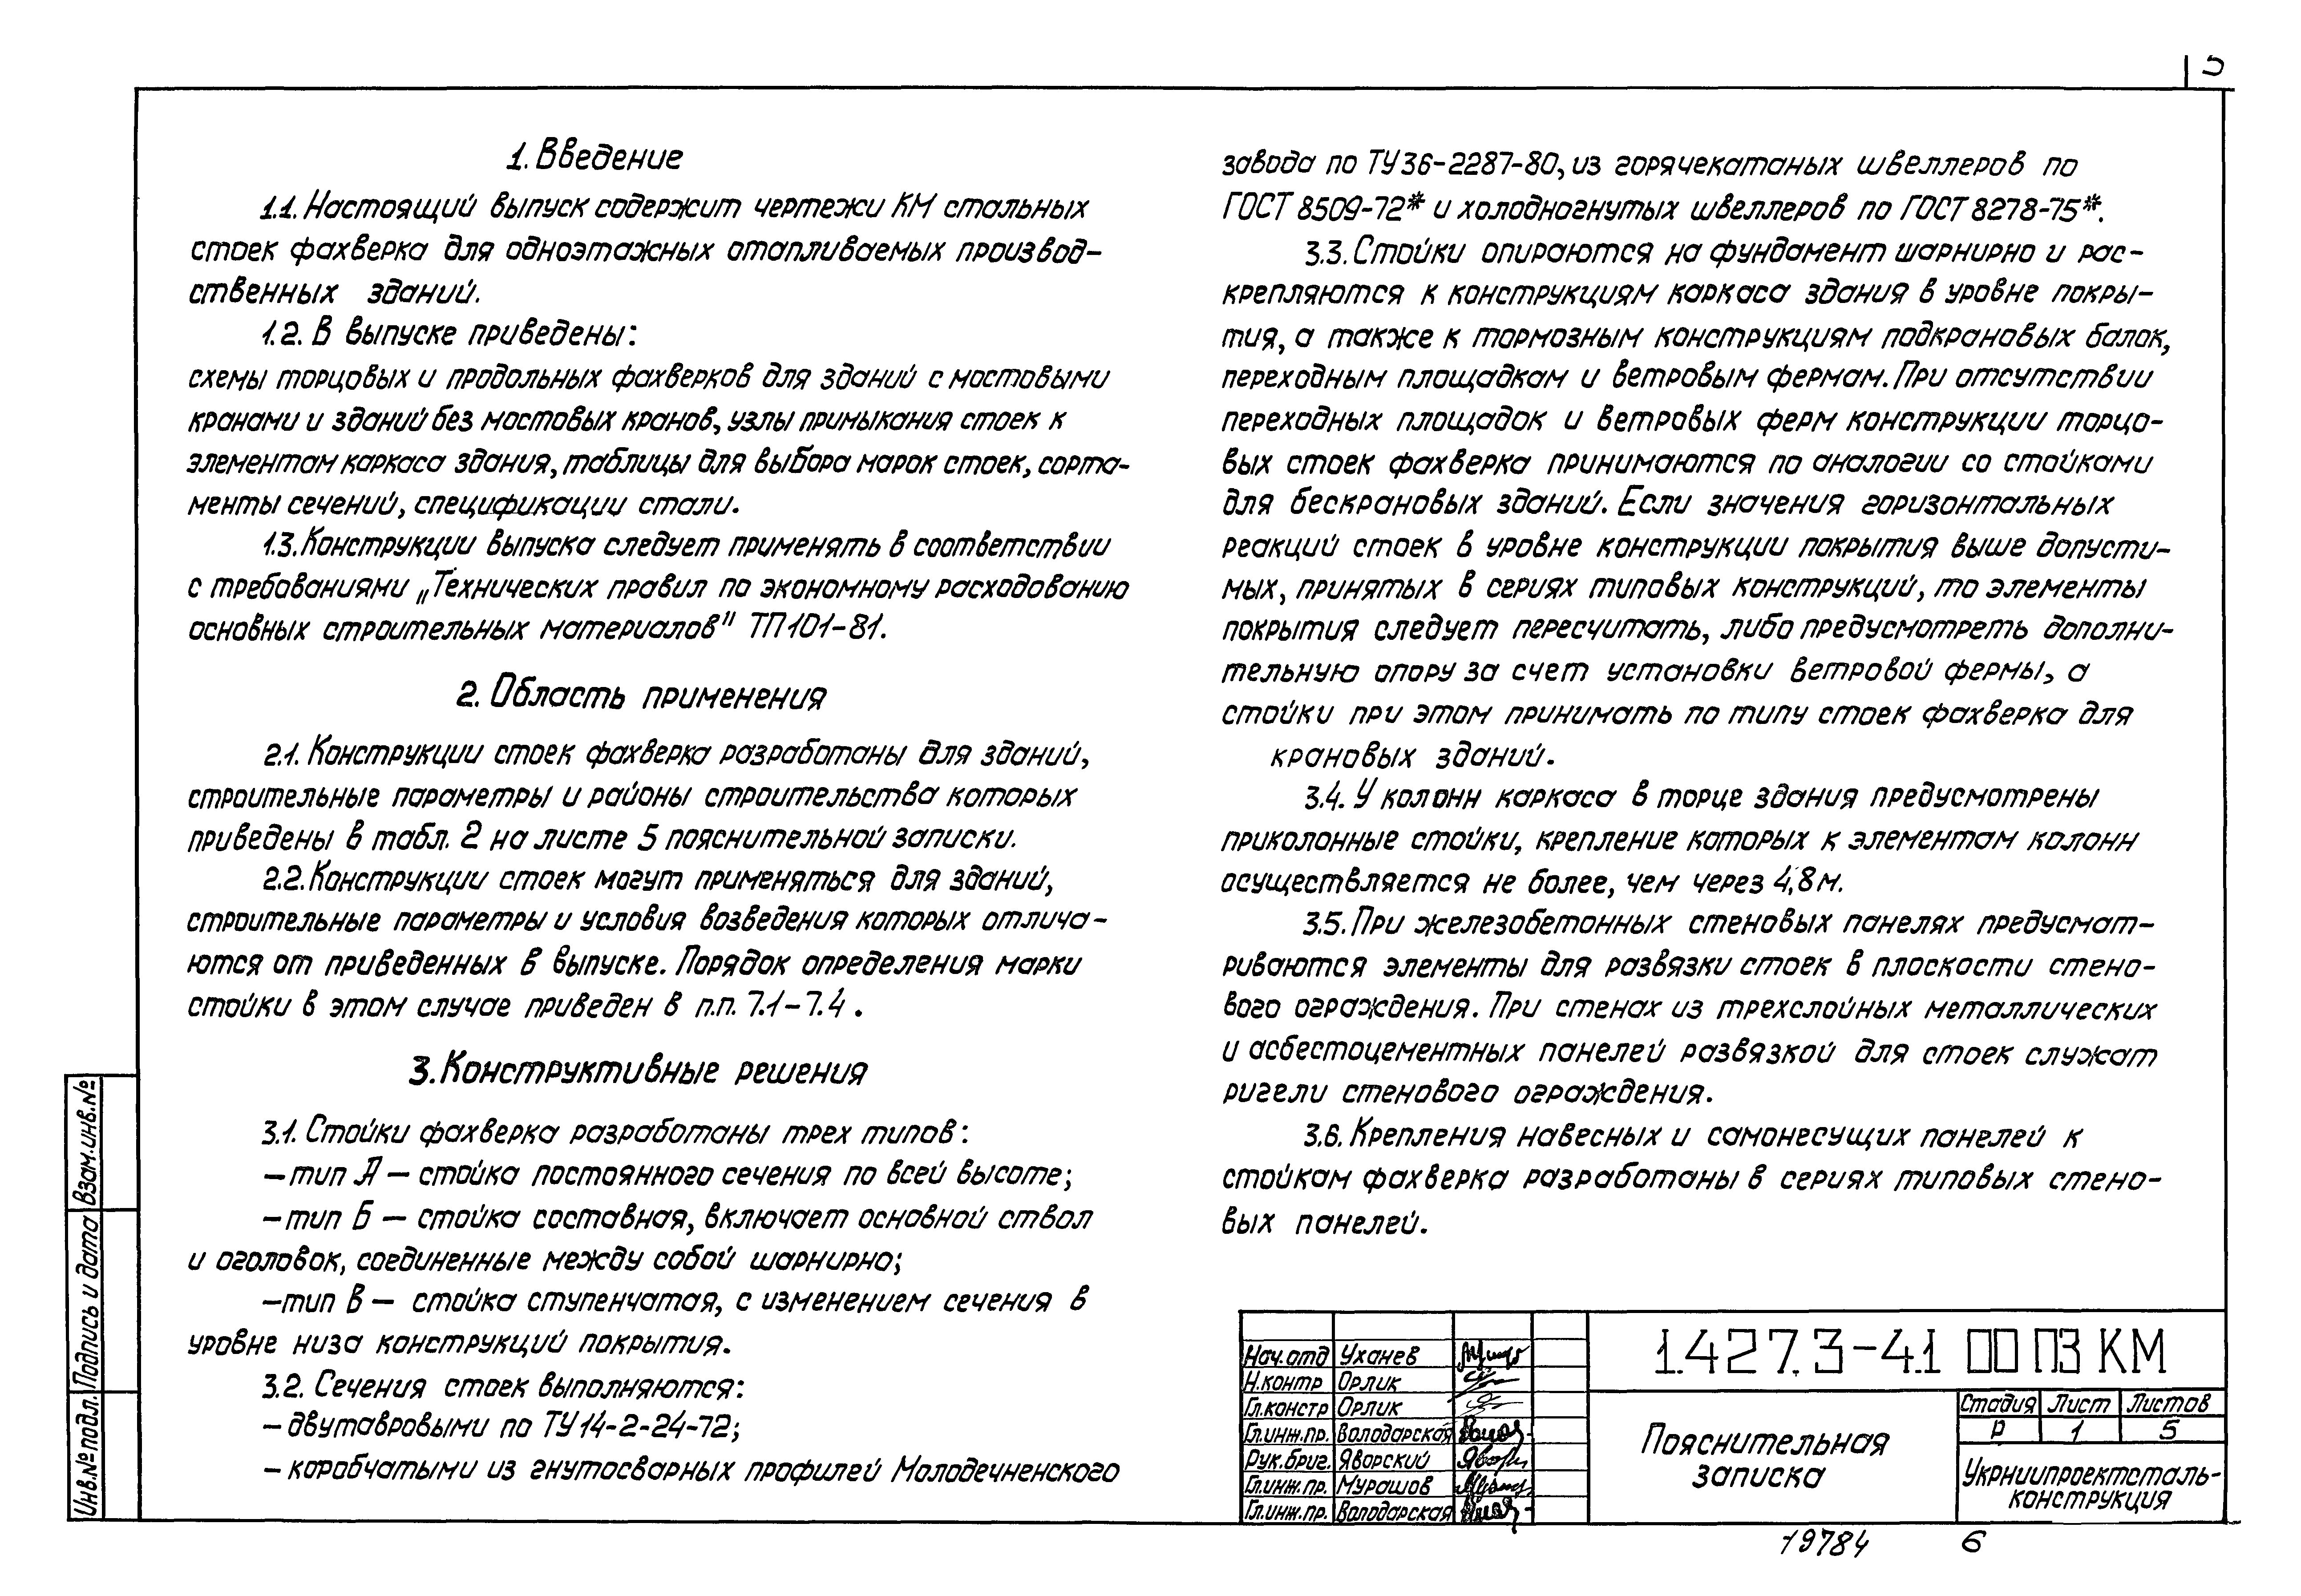 1. Введение
1.1. Настоящий выпуск содержит чертежи КМ стальных
стоек фахверка для одноэтажных отапливаемых производ-
ственных зданий.
1.2. В выпуске приведены:
схемы торцовых и продольных фахверков для зданий с мостовыми
кранами и зданий без мостовых кранов, узлы примыкания стоек к
элементам каркаса здания, таблицы для выбора марок стоек, сорта-
менты сечений, спецификации стали.
1.3. Конструкции выпуска следует применять в соответствии
с требованиями „Технических правил по экономному расходованию
основных строительных материалов" ТП 101-81.
2. Область применения
2.1. Конструкции стоек фахверка разработаны для зданий,
строительные параметры и районы строительства которых
приведены в табл. 2 на листе 5 пояснительной записки.
2.2. Конструкции стоек могут применяться для зданий,
строительные параметры и условия возведения которых отлича-
ются от приведенных в выпуске. Порядок определения марки
стойки в этом случае приведен в п.п. 7.1-7.4.
3. Конструктивные решения
3.1. Стойки фахверка разработаны трех типов:
- тип А - стойка постоянного сечения по всей высоте;
- тип Б - стойка составная, включает основной ствол
и оголовок, соединенные между собой шарнирно;
- тип В - стойка ступенчатая, с изменением сечения в
уровне низа конструкций покрытия.
3.2. Сечения стоек выполняются:
- двутавровыми по ТУ 14-2-24-72;
- коробчатыми из гнутосварных профилей Молодечненского
завода по ТУ 36-2287-80, из горячекатаных швеллеров по
ГОСТ 8509-72* и холодногнутых швеллеров по ГОСТ 8278-75*.
3.3. Стойки опираются на фундамент шарнирно и рас-
крепляются к конструкциям каркаса здания в уровне покры-
тия, а также к тормозным конструкциям подкрановых балок,
переходным площадкам и ветровым фермам. При отсутствии
переходных площадок и ветровых ферм конструкции торцо-
вых стоек фахверка принимаются по аналогии со стойками
для бескрановых зданий. Если значения горизонтальных
реакций стоек в уровне конструкции покрытия выше допусти-
мых, принятых в сериях типовых конструкций, то элементы
покрытия следует пересчитать, либо предусмотреть дополни-
тельную опору за счет установки ветровой фермы, а
стойки при этом принимать по типу стоек фахверка для
крановых зданий.
3.4. У колонн каркаса в торце здания предусмотрены
приколонные стойки, крепление которых к элементам колонн
осуществляется не более, чем через 4,8 м.
3.5. При железобетонных стеновых панелях предусмат-
риваются элементы для развязки стоек в плоскости стено-
вого ограждения. При стенах из трехслойных металлических
и асбестоцементных панелей развязкой для стоек служат
ригели стенового ограждения.
3.6. Крепления навесных и самонесущих панелей к
стойкам фахверка разработаны в сериях типовых стено-
вых панелей.
Взам.инв.№
Подпись и дата
Инв.№ подл.
Нач.отд Уханев
Н.контр Орлик
Гл.констр Орлик
Гл.инж.пр. Володарская
Рук.бриг. Яворский
Гл.инж.пр. Мурашов
Гл.инж.пр. Володарская
1.427.3-4.1 00 ПЗ КМ
Пояснительная
записка
Стадия Лист Листов
Р 1 5
Укрниипроектсталь-
конструкция
19784 6